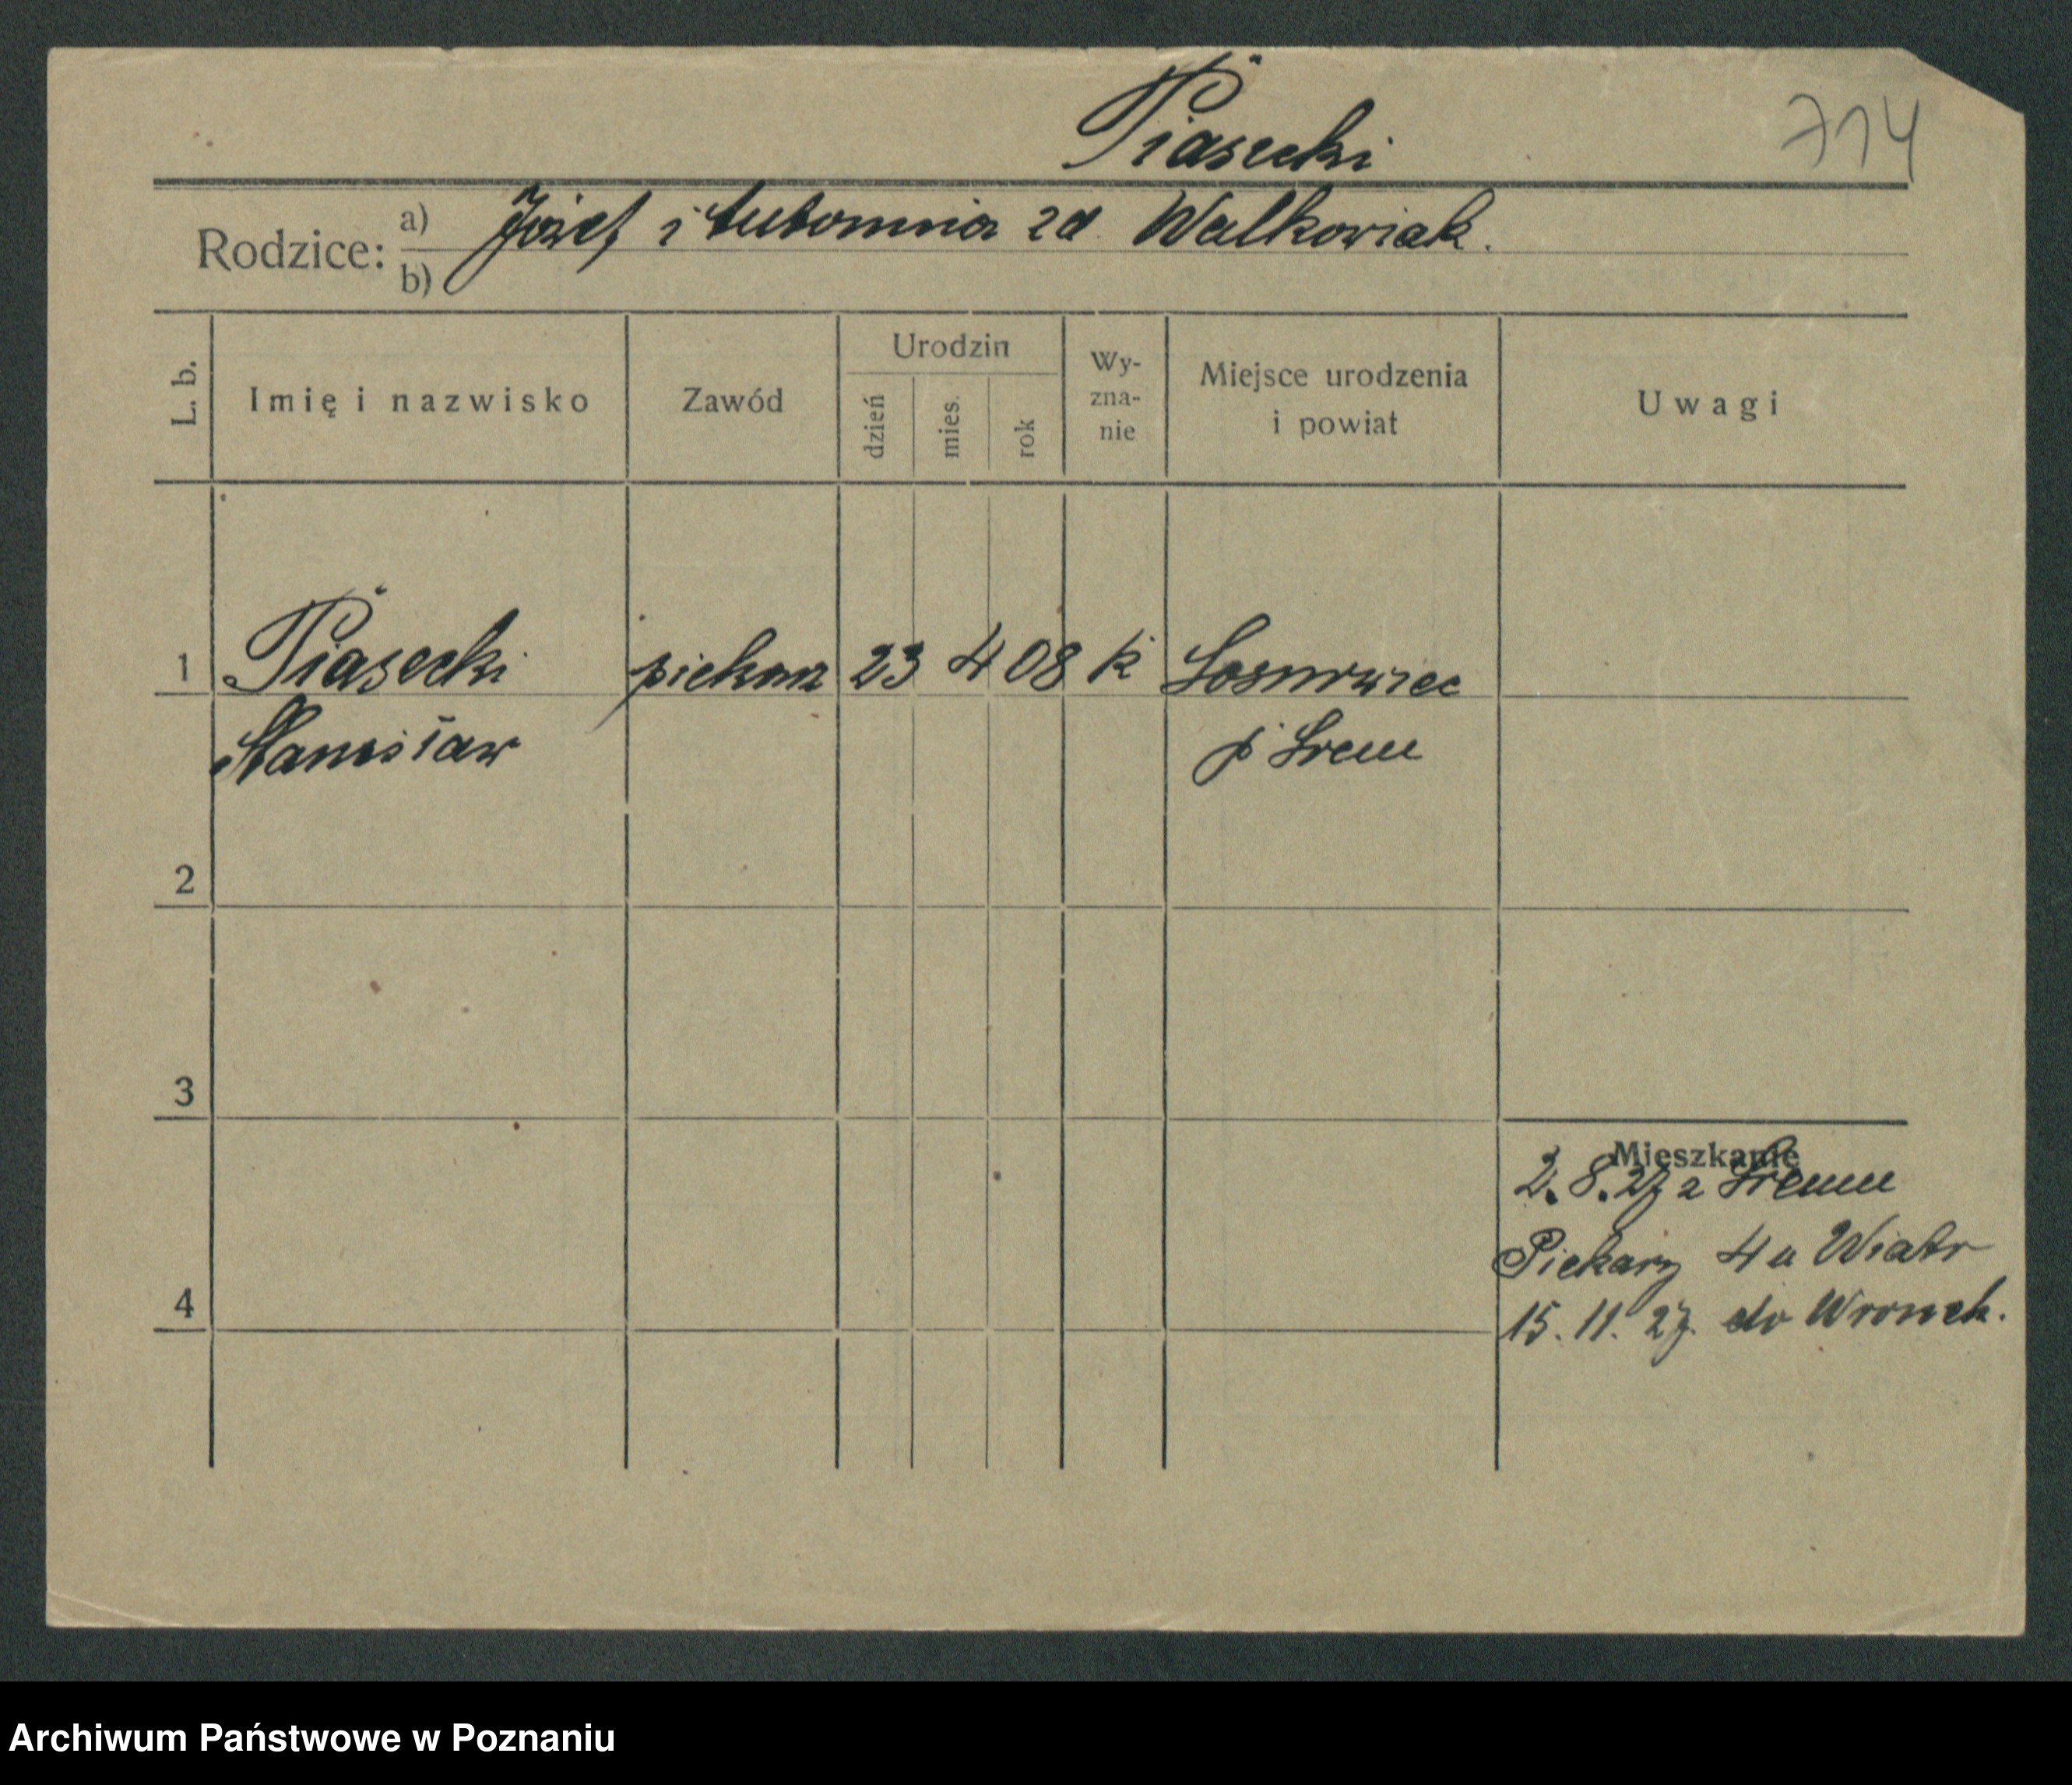 Piasecki
714
Rodzice: a) b) Józef i zd Walkowiak.
L. b.
Imię i nazwisko
Zawód
Urodzin
dzień
mies.
rok
Wy-
zna-
nie
Miejsce urodzenia
i powiat
Uwagi
1 Piasecki piekarz 23 4 08 k
Stanisław p Śrem
2
3
Mieszkanie
2. 8. 27 z Śremu
Piekary 4 u Wiatr
4 15. 11. 27. do Wronek.
Archiwum Państwowe w Poznaniu